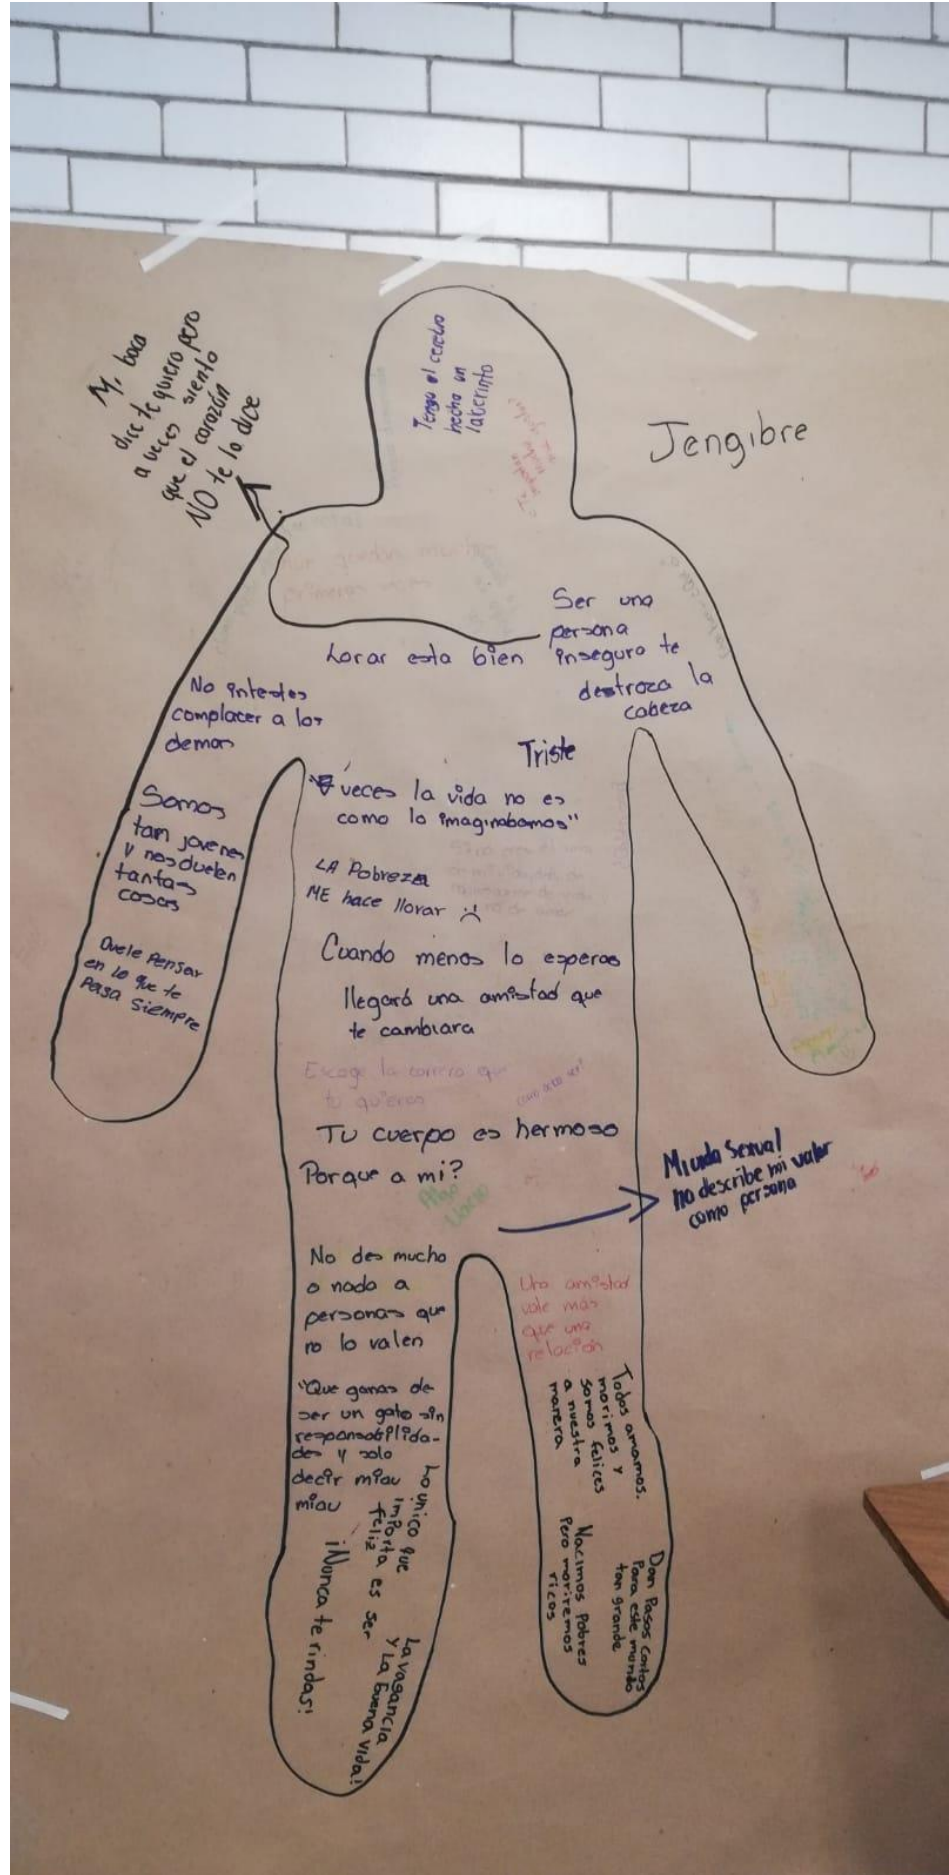 Mi boca
dice te quiero pero
a veces siento
que el corazón
NO te lo dice
Tengo el cerebro
hecho un
laberinto
Jengibre
que quedan muchas
primeras
Ser una
persona
insegura te
destroza la
cabeza
Lorar esta bien
No intentes
complacer a los
demas
Triste
veces la vida no es
como lo imaginabamos"
Somos
tam jovenes
y nos duelen
tantas
cosas
LA Pobreza
ME hace llorar
Duele Pensar
en lo que te
Pasa siempre
Cuando menos lo esperas
llegará una amistad que
te cambiara
Escoge la carrera que
tu quieras
TU cuerpo es hermoso
Porque a mi?
Mi vida Sexual
no describe mi valor
como persona
No des mucho
o nada a
personas que
no lo valen
Una amistad
vale más
que una
relación
"Que ganas de
ser un gato sin
responsabilida-
des y solo
decir miau
miau
Lo único que
importa es ser
feliz
¡Nunca te rindas!
La vagancia
y La buena vida!
Todos amamos,
morimos y
somos felices
a nuestra
manera
Nacimos Pobres
Pero moriremos
ricos
Dan Pasos cortos
Para este mundo
tan grande